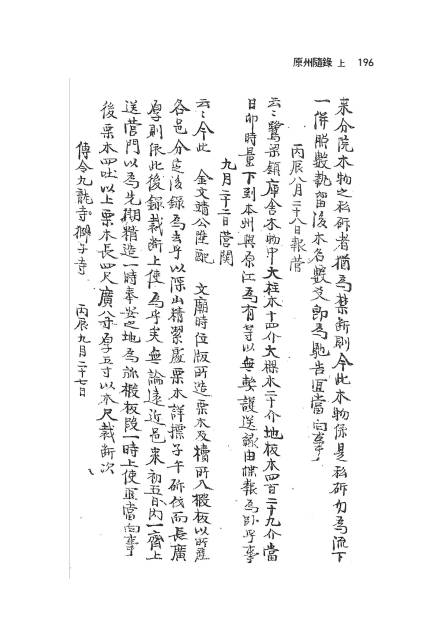 原州隨錄 上 196
來分院木物之私斫者猶爲禁斷則今此木物係是私斫乃爲流下
一倂脫數執留後木名數爻卽爲馳告宜當向事
丙辰八月二十八日報營
云云鷺梁鎭庫舍木物中大柱木十四介大樑木二十介地板木四百二十九介當
日卯時量下到本州興原江爲有等以無弊護送緣由牒報爲臥乎事
九月二十二日營關
云云今此 金文靖公陞配 文廟時位版所造栗木及櫝所入椴板以所產
各邑分定後錄爲去乎以深山精潔處栗木詳擇子午斫伐而長廣
厚則依此後錄裁斷上使爲乎矣無論遠近邑來初五日內一齊上
送營門以爲先期精造一時奉安之地爲旀椴板段一時上使宜當向事
後栗木四吐以上栗木長四尺廣八寸厚五寸以木尺裁斷次
傳令九龍寺獅子寺 丙辰九月二十七日